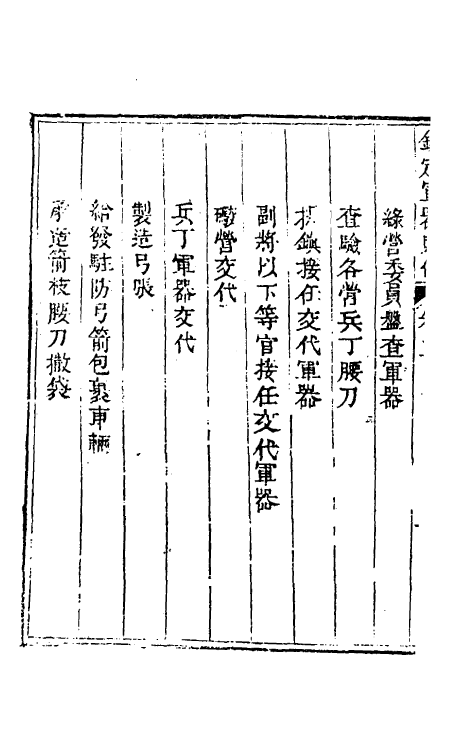 欽定軍器則例
綠營委員盤查軍器
查驗各營兵丁腰刀
提鎮接任交代軍器
副將以下等官接任交代軍器
營交代
兵丁軍器交代
製造弓張
給發駐防弓箭包裹車輛
承造箭枝腰刀撒袋